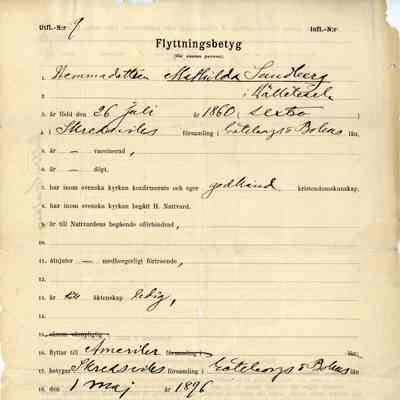 Utfl.-N:r 9 Infl.-N:r
Flyttningsbetyg
(för ensam person).
1. Hemmadottren Mathilda Sandberg
2. i
3. är född den 26 Juli år 1860 (sextio)
4. i Skredsviks församling i Göteborgs o Bohus län,
5. är — vaccinerad,
6. är — döpt,
7. har inom svenska kyrkan konfirmerats och eger godkänd kristendomskunskap,
8. har inom svenska kyrkan begått H. Nattvard.
9. är till Nattvardens begående oförhindrad,
10.
11. åtnjuter — medborgerligt förtroende,
12.
13. är till äktenskap ledig,
14.
15. såsom vämpligtig
16. flyttar till Amerika församling i län;
17. betygar Skredsviks församling i Göteborgs o Bohus län
18. den 1 maj år 1896